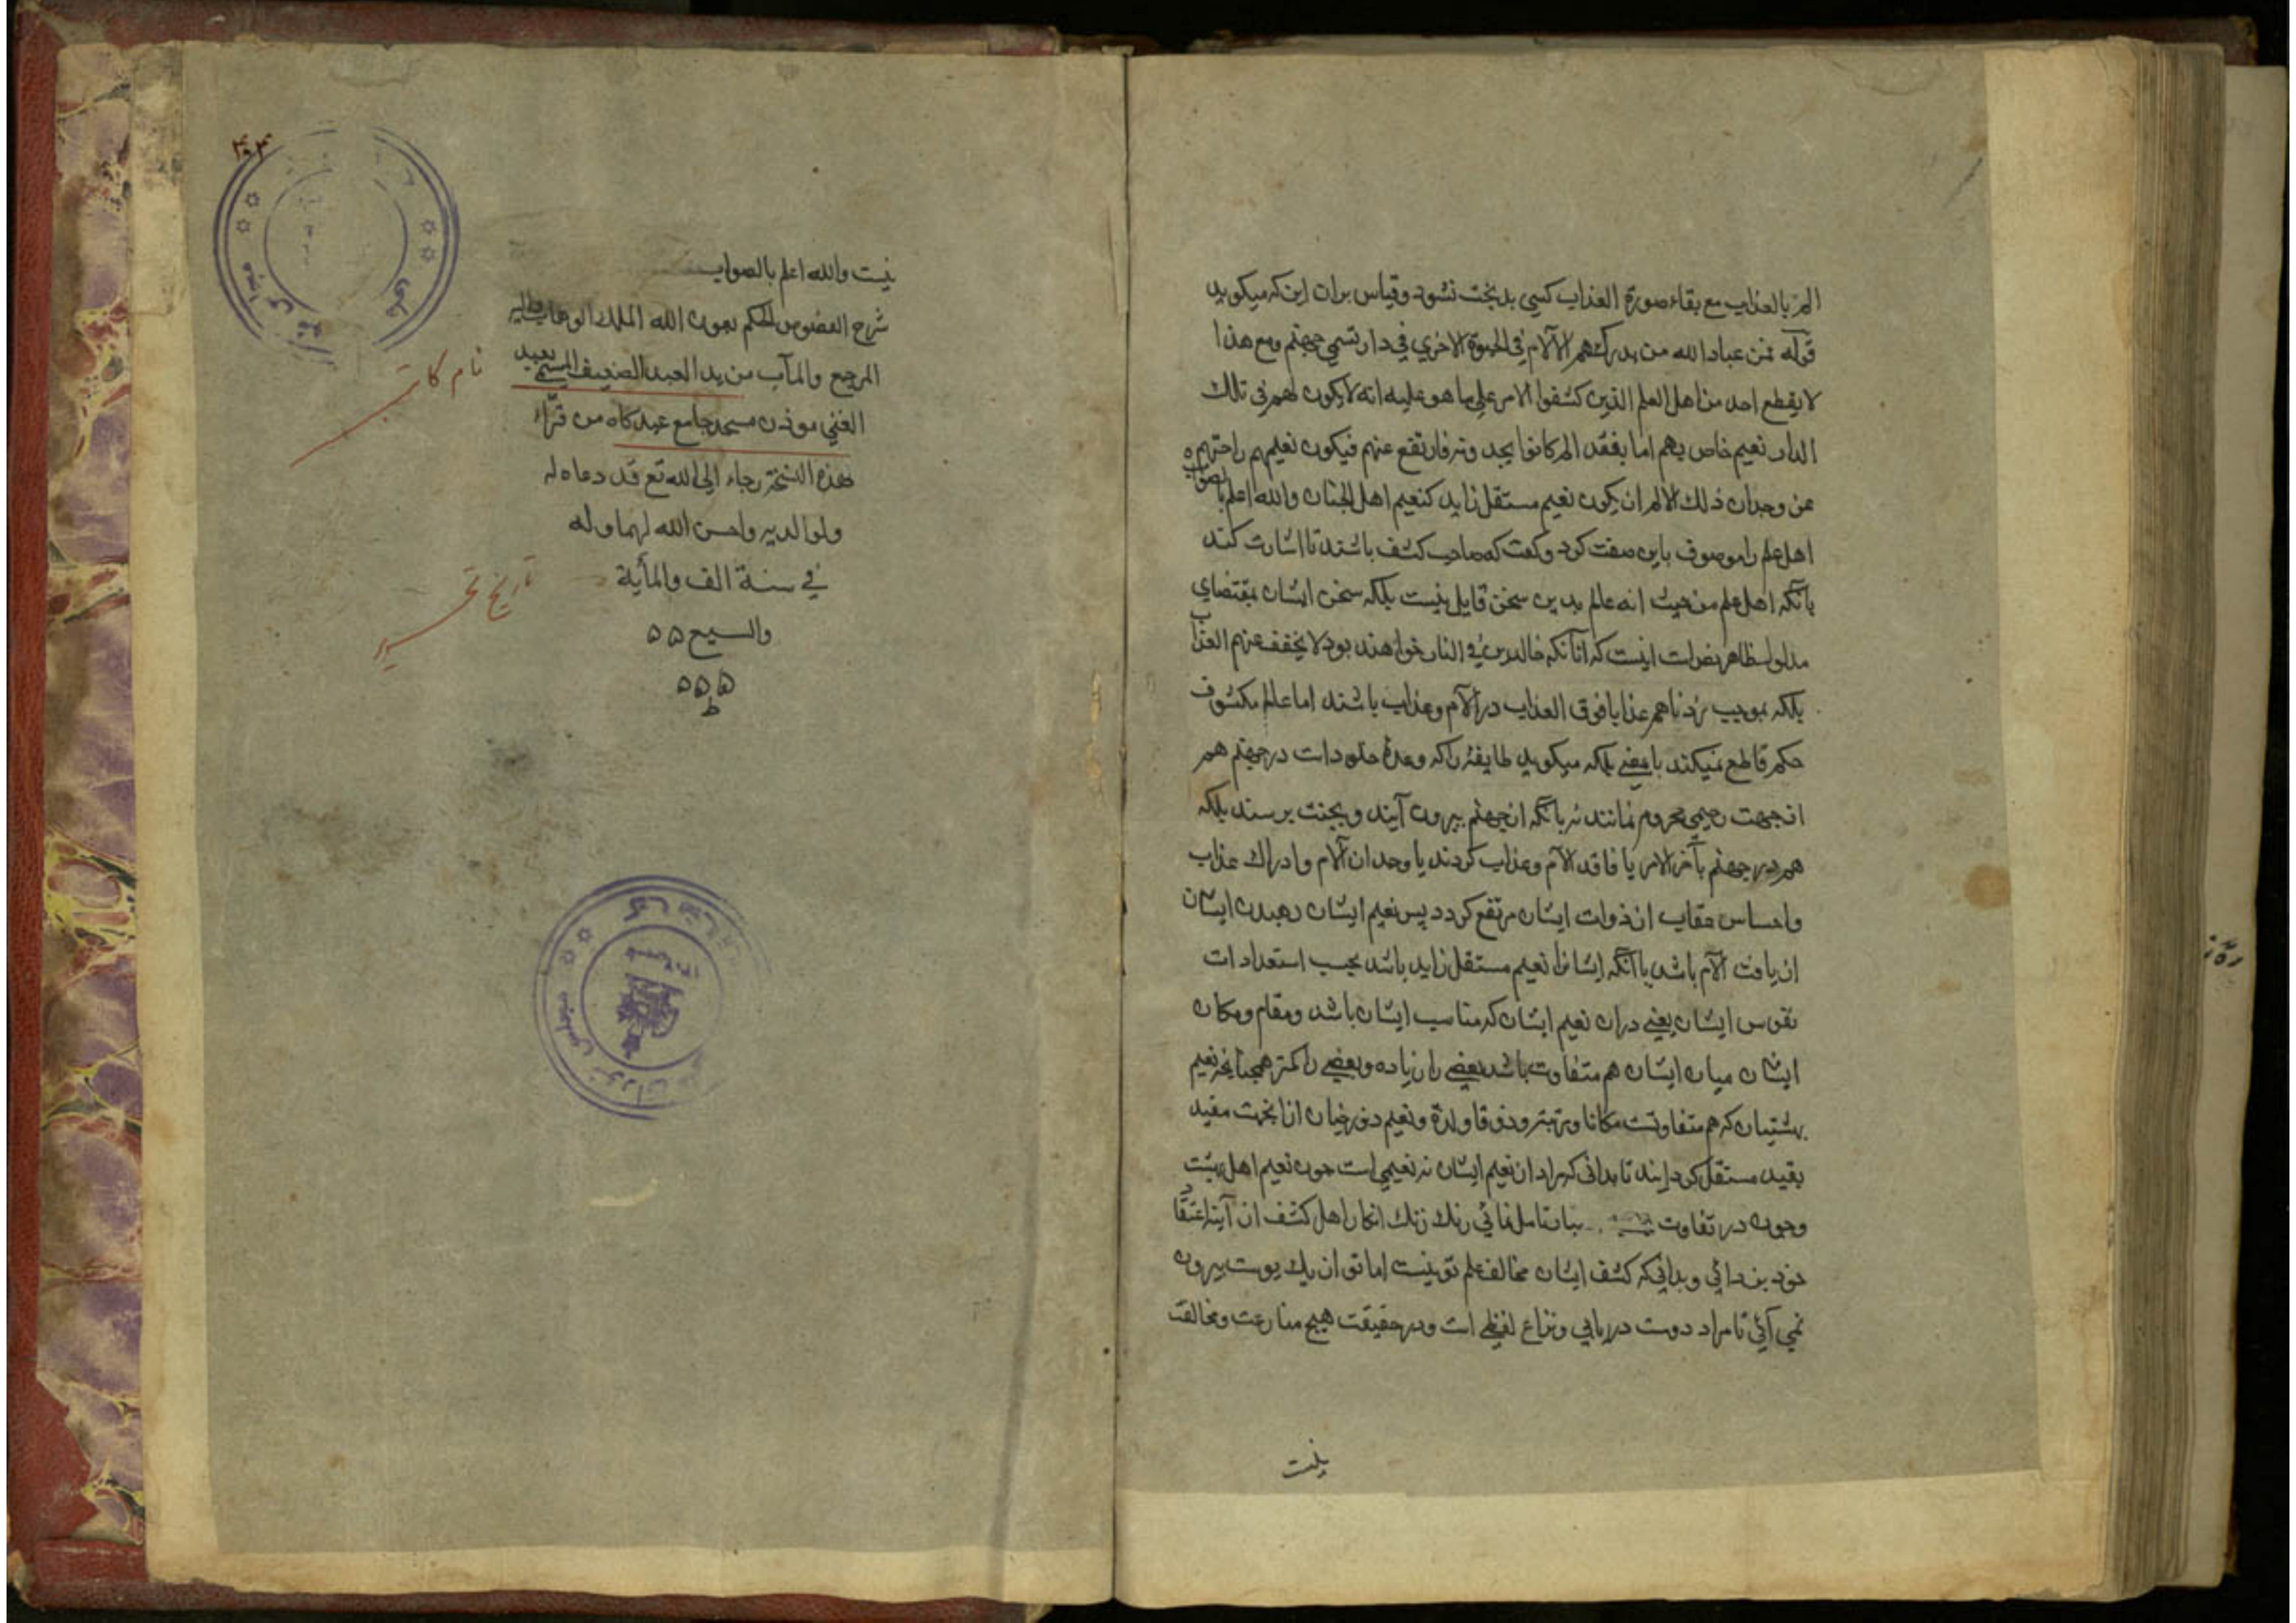 الم بالعذاب مع بقاء صورة العذاب كسى بدبخت نشود وقياس بران اين كه ميكويد
قوله فمن عباد الله من يدركهم الآلام في الحيوة الاخري في دار تسمي جهنم ومع هذا
لا يقطع احد من اهل العلم الذين كشفوا الامر علي ما هو عليه انه لا يكون لهم في تلك
الدار نعيم خاص بهم اما بفقد الم كانوا يجدونه فارتفع عنهم فيكون نعيمهم راحتهم
عن وجدان ذلك الالم ان يكون نعيم مستقل زايد كنعيم اهل الجنان والله اعلم بالصواب
اهل علم را موصوف باين صفت كرد وكفت كه صاحب كشف باشند تا اشارت كند
بآنكه اهل علم من حيث انه عالم بدين سخن قايل نيست بلكه سخن ايشان بمقتضاي
مدلول ظاهر نص است اينست كه آنانكه خالدين في النار خواهند بود لا يخفف عنهم العذاب
بلكه بموجب زدناهم عذابا فوق العذاب در آلام وعذاب باشند اما عالم مكشوف
حكم قاطع نميكند باين معني بلكه ميكويد طايفه را كه وعدهٔ خلود است در جهنم هم
از جهت رحيمي محروم نمانند نه بآنكه از جهنم بيرون آيند وبجنت برسند بلكه
هم در جهنم بآخر الامر يا فاقد الآم وعذاب كردند يا وجدان آلام وادراك عذاب
واحساس عقاب از ذوات ايشان مرتفع كردد پس نعيم ايشان رهيدن ايشان
از يافت آلام باشد يا آنكه ايشانرا نعيم مستقل زايد باشد بحسب استعدادات
نفوس ايشان يعني دران نعيم ايشان كه مناسب ايشان باشد ومقام ومكان
ايشان ميان ايشان هم متفاوت باشد بعضي را زياده وبعضي را كمتر همچنانكه نعيم
بهشتيان كه هم متفاوتست مكانا ومرتبة وذوقا ولذة ونعيم دوزخيان ازانجهت مقيد
بقيد مستقل كردانند تا بدانى كه مراد از نعيم ايشان نه نعيمي است چون نعيم اهل بهشت
وچون در تفاوت بتامل نمائي رنك زنك انكار اهل كشف از آينه اعتقاد
خود بزدائي وبداني كه كشف ايشان مخالف علم تو نيست اما تو از يك پوست بيرون
نمي آئي تا مراد دوست دريابي ونزاع لفظي است ودر حقيقت هيچ منازعت ومخالفت
نيست
۳۰۳
نيست والله اعلم بالصواب
شرح الفصوص الحكم بعون الله الملك الوهاب واليه
المرجع والمآب من يد العبد الضعيف المسمي بعبد
الغني موذن مسجد جامع عيدكاه من قرّاء
هذه النسخة رجاء الي الله تع قد دعاه له
ولوالديه واحسن الله لهما وله
في سنة الف والمأية
والسبع ۵۵
۵۵۵
ط
نام كاتب
تاريخ تحرير